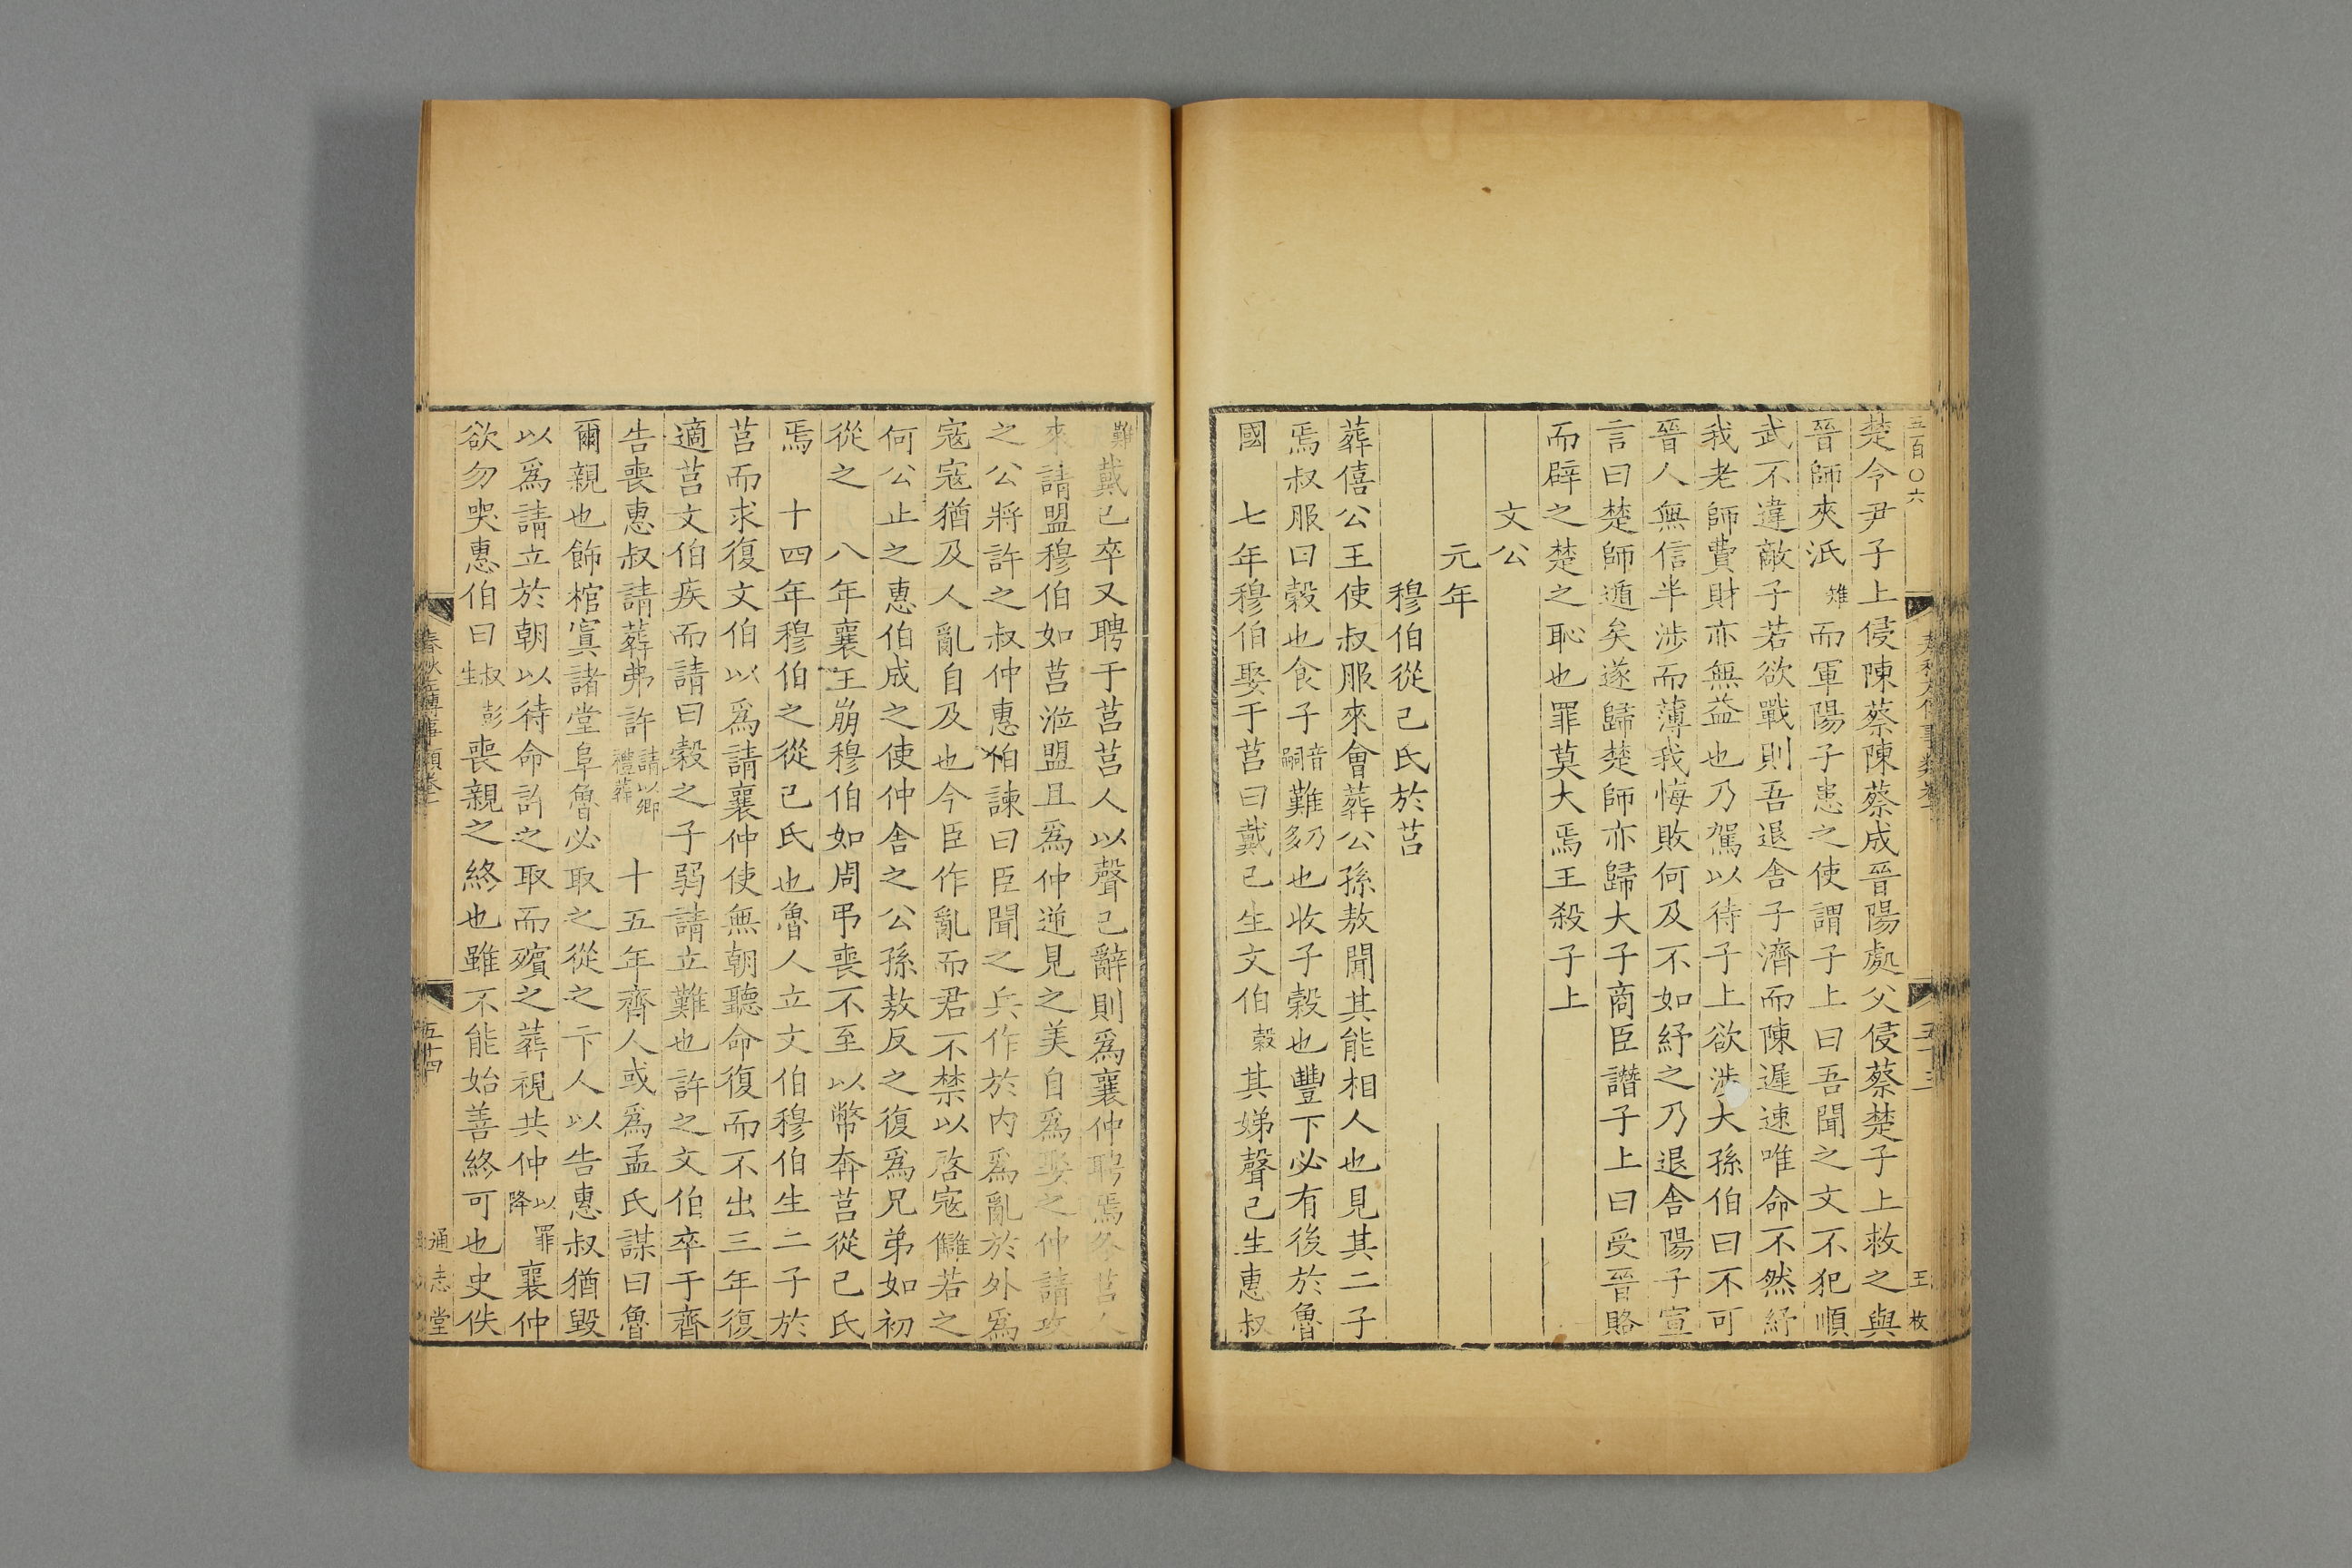 五百〇六
王 枚
楚令尹子上侵陳蔡陳蔡成晉陽處父侵蔡楚子上救之與
晉師夾泜雉而軍陽子患之使謂子上曰吾聞之文不犯順
武不違敵子若欲戰則吾退舍子濟而陳遲速唯命不然紓
我老師費財亦無益也乃駕以待子上欲涉大孫伯曰不可
晉人無信半涉而薄我悔敗何及不如紓之乃退舍陽子宣
言曰楚師遁矣遂歸楚師亦歸大子商臣譖子上曰受晉賂
而辟之楚之恥也罪莫大焉王殺子上
文公
元年
穆伯從己氏於莒
葬僖公王使叔服來會葬公孫敖聞其能相人也見其二子
焉叔服曰穀也食子音嗣難多乃也收子穀也豐下必有後於魯
國 七年穆伯娶于莒曰戴己生文伯穀其娣聲己生惠叔
難戴己卒又聘于莒莒人以聲己辭則爲襄仲聘焉冬莒人
來請盟穆伯如莒涖盟且爲仲逆見之美自爲娶之仲請攻
之公將許之叔仲惠伯諫曰臣聞之兵作於內爲亂於外爲
寇寇猶及人亂自及也今臣作亂而君不禁以啓寇讎若之
何公止之惠伯成之使仲舍之公孫敖反之復爲兄弟如初
從之 八年襄王崩穆伯如周弔喪不至以幣奔莒從己氏
焉 十四年穆伯之從己氏也魯人立文伯穆伯生二子於
莒而求復文伯以爲請襄仲使無朝聽命復而不出三年復
適莒文伯疾而請曰穀之子弱請立難也許之文伯卒于齊
告喪惠叔請葬弗許請以卿禮葬 十五年齊人或爲孟氏謀曰魯
爾親也飾棺寘諸堂阜魯必取之從之卞人以告惠叔猶毀
以爲請立於朝以待命許之取而殯之葬視共仲以罪降襄仲
欲勿哭惠伯曰叔彭生喪親之終也雖不能始善終可也史佚
春秋左傳事類卷一
五十四
通志堂